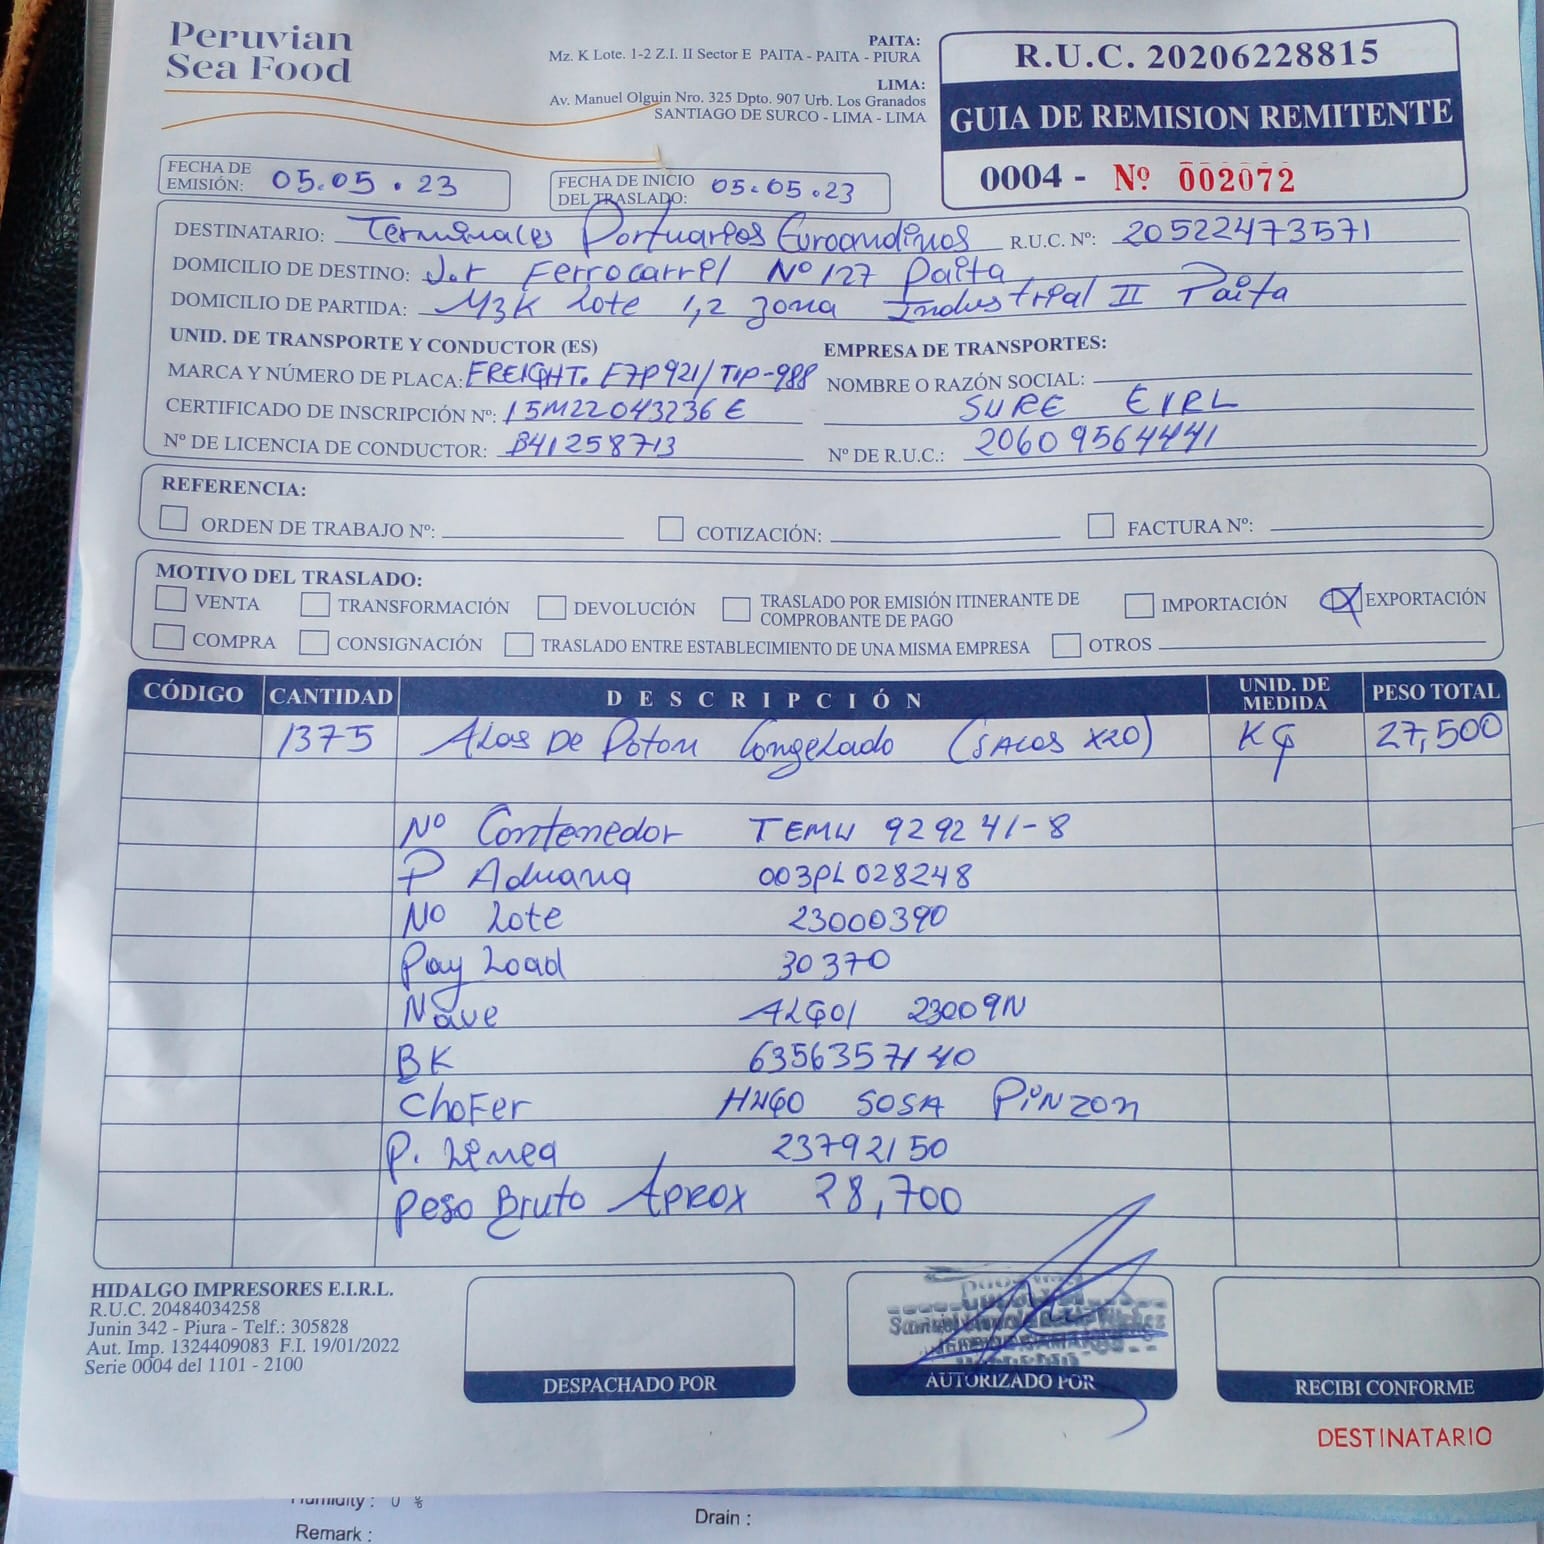 Peruvian
Sea Food
PAITA:
Mz. K Lote. 1-2 Z.I. II Sector E PAITA - PAITA - PIURA
LIMA:
Av. Manuel Olguin Nro. 325 Dpto. 907 Urb. Los Granados
SANTIAGO DE SURCO - LIMA - LIMA
R.U.C. 20206228815
GUIA DE REMISION REMITENTE
0004 - Nº 002072
FECHA DE EMISIÓN: 05.05.23
FECHA DE INICIO DEL TRASLADO: 05.05.23
DESTINATARIO: Terminales Portuarios Euroandinos R.U.C. Nº: 20522473571
DOMICILIO DE DESTINO: Jr Ferrocarril Nº 127 Paita
DOMICILIO DE PARTIDA: MZK Lote 1,2 Zona Industrial II Paita
UNID. DE TRANSPORTE Y CONDUCTOR (ES)
MARCA Y NÚMERO DE PLACA: FREIGHT. F7P921/TIP-988
CERTIFICADO DE INSCRIPCIÓN Nº: 15M22043236E
Nº DE LICENCIA DE CONDUCTOR: B41258713
EMPRESA DE TRANSPORTES:
NOMBRE O RAZÓN SOCIAL:
SURE EIRL
Nº DE R.U.C.: 20609564441
REFERENCIA:
ORDEN DE TRABAJO Nº: COTIZACIÓN: FACTURA Nº:
MOTIVO DEL TRASLADO:
VENTA TRANSFORMACIÓN DEVOLUCIÓN TRASLADO POR EMISIÓN ITINERANTE DE COMPROBANTE DE PAGO IMPORTACIÓN X EXPORTACIÓN
COMPRA CONSIGNACIÓN TRASLADO ENTRE ESTABLECIMIENTO DE UNA MISMA EMPRESA OTROS
CÓDIGO CANTIDAD DESCRIPCIÓN UNID. DE MEDIDA PESO TOTAL
1375 Alas De Poton Congelado (SACOS X20) KG 27,500
Nº Contenedor TEMU 929241-8
P Aduana 003PL028248
Nº Lote 23000390
Pay Load 30370
Nave ALGOL 23009N
BK 6356357140
Chofer HUGO SOSA PINZON
P. Linea 23792150
Peso Bruto Aprox 28,700
HIDALGO IMPRESORES E.I.R.L.
R.U.C. 20484034258
Junin 342 - Piura - Telf.: 305828
Aut. Imp. 1324409083 F.I. 19/01/2022
Serie 0004 del 1101 - 2100
DESPACHADO POR
AUTORIZADO POR
RECIBI CONFORME
DESTINATARIO
Humidity : 0 %
Remark :
Drain :